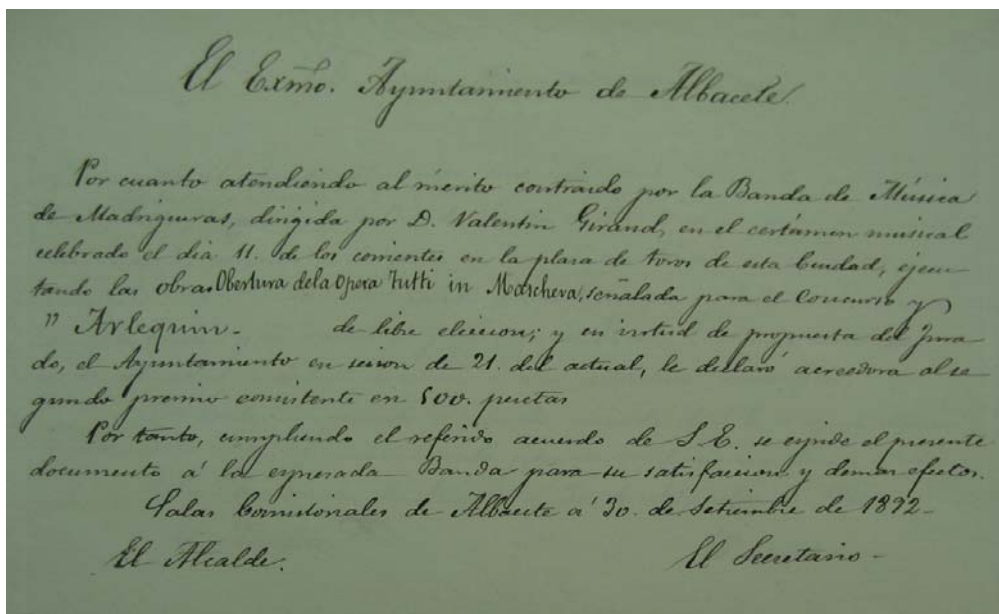 El Exmo. Ayuntamiento de Albacete.
Por cuanto atendiendo al mérito contraido por la Banda de Música
de Madrigueras, dirigida por D. Valentin Giraud, en el certámen musical
celebrado el dia 11. de los corrientes en la plaza de toros de esta Ciudad, ejecu-
tando las obras Obertura dela Opera Tutti in Maschera, señalada para el Concurso y
" Arlequin - de libre eleccion; y en virtud de propuesta del Jura-
do, el Ayuntamiento en sesion de 21. del actual, le declaró acreedora al se
gundo premio consistente en 500. pesetas
Por tanto, cumpliendo el referido acuerdo de S. E. se expide el presente
documento á la expresada Banda para su satisfaccion y demas efectos.
Salas Consistoriales de Albacete á 30. de Setiembre de 1892-
El Alcalde. El Secretario-